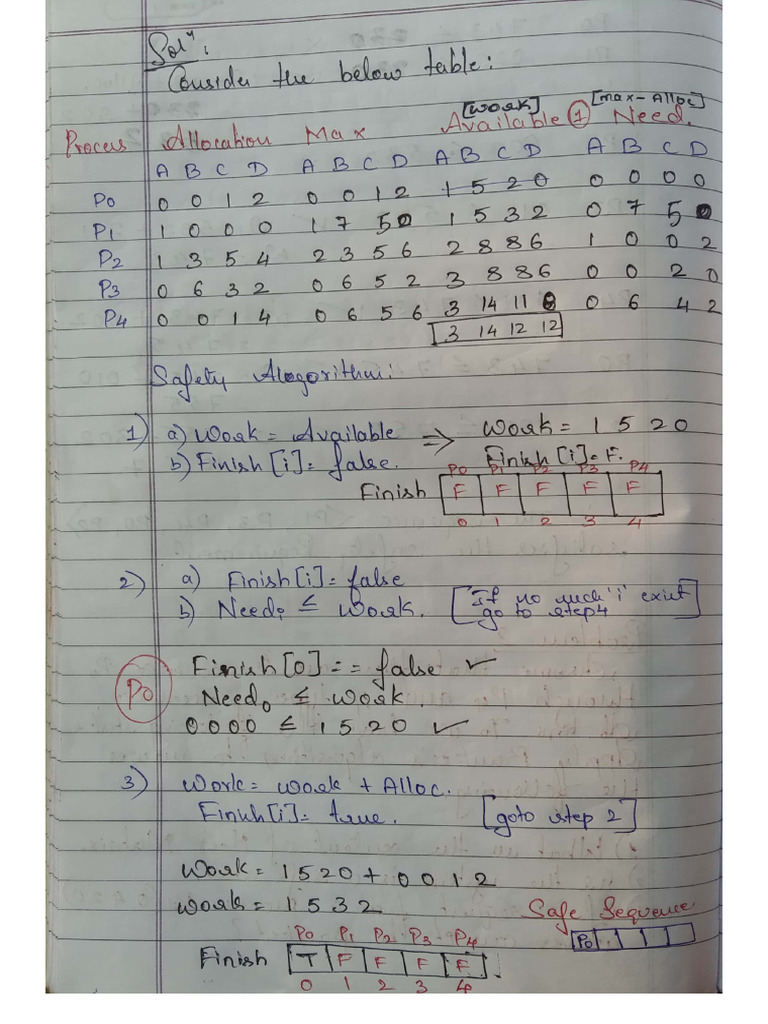 Solⁿ:
Consider the below table:
[work] [max-Alloc]
Process Allocation Max Available ① Need.
A B C D A B C D A B C D A B C D
P0 0 0 1 2 0 0 1 2 1 5 2 0 0 0 0 0
P1 1 0 0 0 1 7 5 0 1 5 3 2 0 7 5 0
P2 1 3 5 4 2 3 5 6 2 8 8 6 1 0 0 2
P3 0 6 3 2 0 6 5 2 3 8 8 6 0 0 2 0
P4 0 0 1 4 0 6 5 6 3 14 11 8 0 6 4 2
3 14 12 12
Safety Alogorithm:
1) a) Work = Available => Work = 1 5 2 0
b) Finish [i] = false. Finish [i] = F.
P0 P1 P2 P3 P4
Finish F F F F F
0 1 2 3 4
2) a) Finish[i] = false
b) Needi ≤ Work. [If no such 'i' exist
go to step4]
P0 Finish[0] == false ✓
Need0 ≤ work.
0 0 0 0 ≤ 1 5 2 0 ✓
3) Work = work + Alloc.
Finish[i] = true. [goto step 2]
Work = 1 5 2 0 + 0 0 1 2
work = 1 5 3 2 Safe Sequence
P0 P1 P2 P3 P4 P0
Finish T F F F F.
0 1 2 3 4